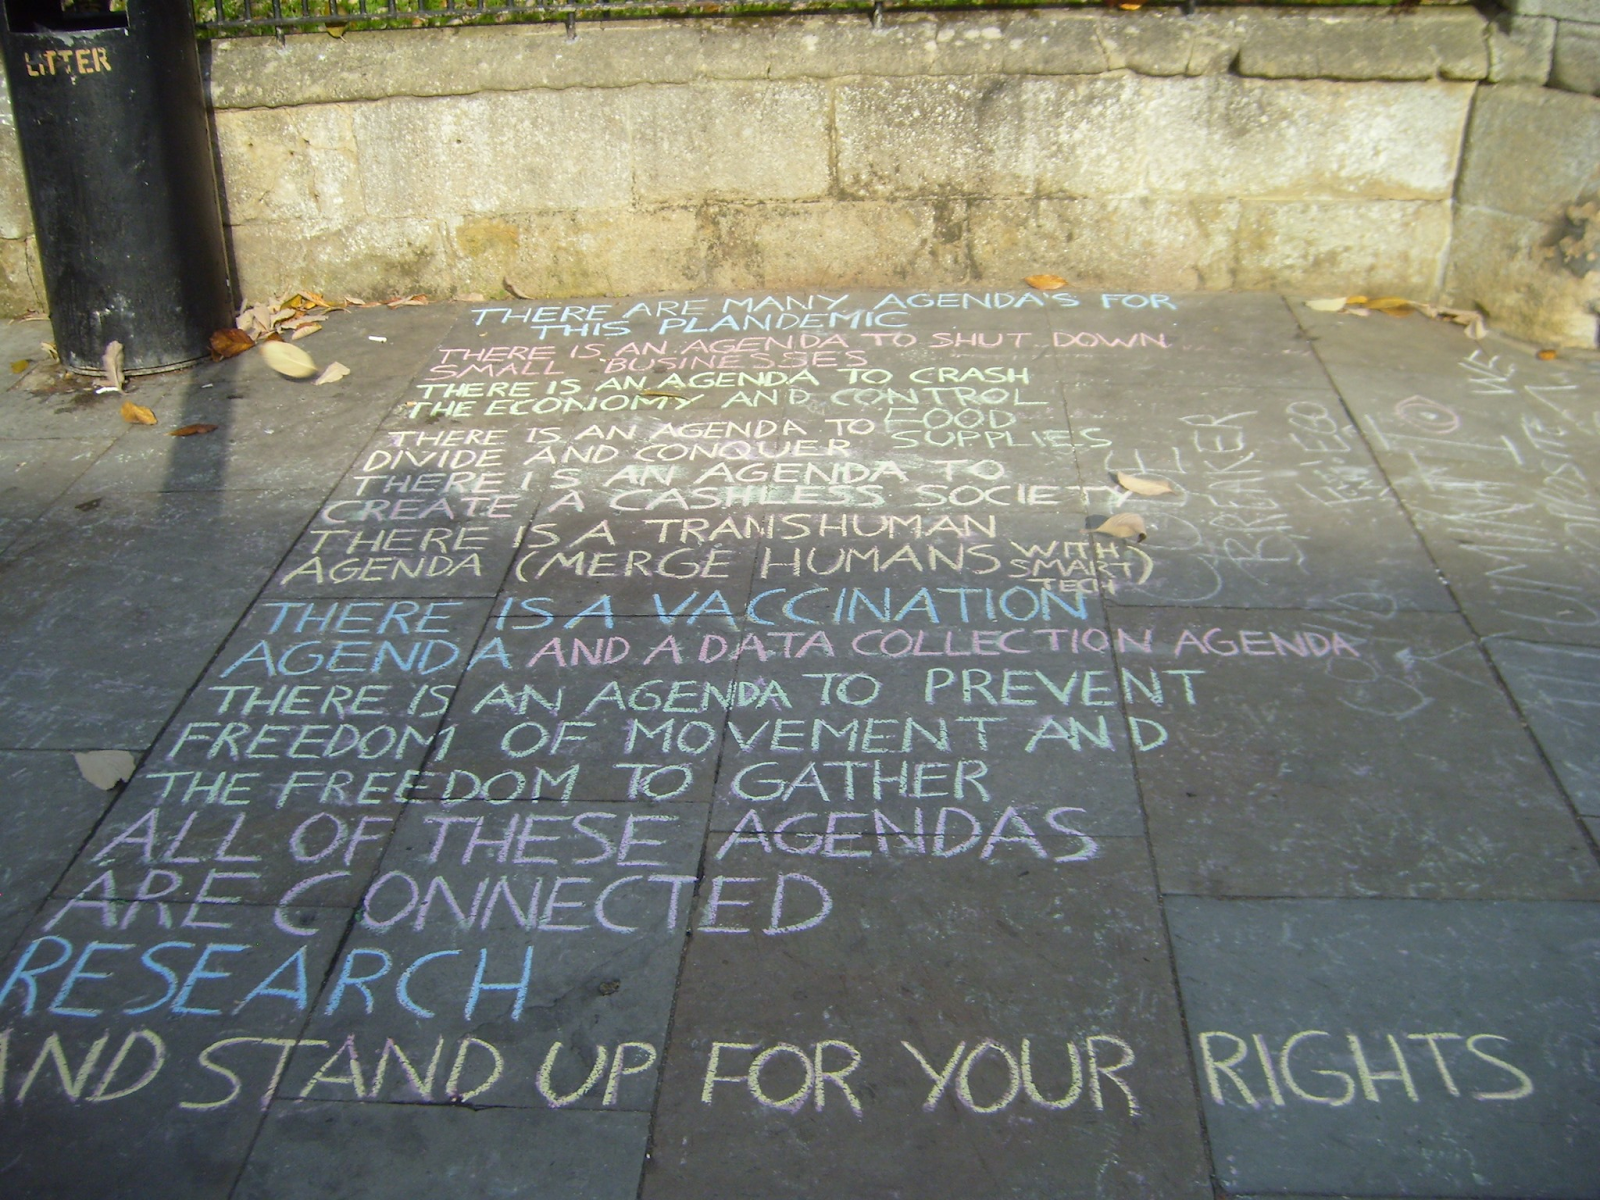 LITTER
THERE ARE MANY AGENDA'S FOR
THIS PLANDEMIC
THERE IS AN AGENDA TO SHUT DOWN
SMALL BUSINESSES
THERE IS AN AGENDA TO CRASH
THE ECONOMY AND CONTROL
FOOD
SUPPLIES
THERE IS AN AGENDA TO
DIVIDE AND CONQUER
THERE IS AN AGENDA TO
CREATE A CASHLESS SOCIETY
THERE IS A TRANSHUMAN
AGENDA (MERGE HUMANS WITH
SMART
TECH)
THERE IS A VACCINATION
AGENDA AND A DATA COLLECTION AGENDA
THERE IS AN AGENDA TO PREVENT
FREEDOM OF MOVEMENT AND
THE FREEDOM TO GATHER
ALL OF THESE AGENDAS
ARE CONNECTED
RESEARCH
AND STAND UP FOR YOUR RIGHTS
WE